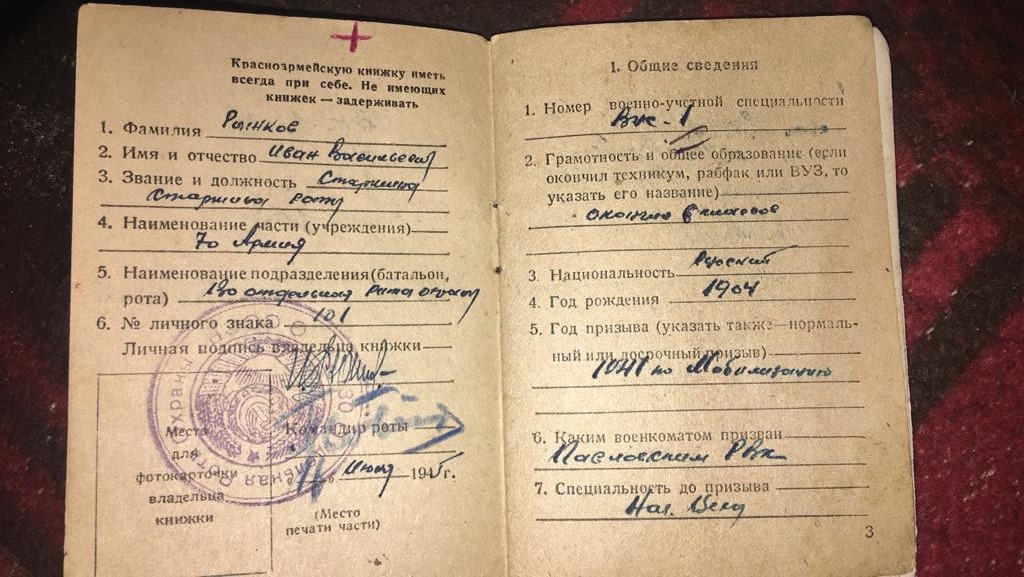 Красноармейскую книжку иметь
всегда при себе. Не имеющих
книжек — задерживать
1. Фамилия Рынков
2. Имя и отчество Иван Васильевич
3. Звание и должность Старшина
Старшина роты
4. Наименование части (учреждения)
70 Армия
5. Наименование подразделения (батальон,
рота) 130 отдельная рота охраны
6. № личного знака 101
Личная подпись владельца книжки
Командир роты
Июня 1945 г.
Место
для
фотокарточки
владельца
книжки
(Место
печати части)
1. Общие сведения
1. Номер военно-учетной специальности
Вус-1
2. Грамотность и общее образование (если
окончил техникум, рабфак или ВУЗ, то
указать его название)
3. Национальность Русский
4. Год рождения 1904
5. Год призыва (указать также — нормаль-
ный или досрочный призыв)
1941 по Мобилизации
6. Каким военкоматом призван
Павловским РВК
7. Специальность до призыва
Нач.
3